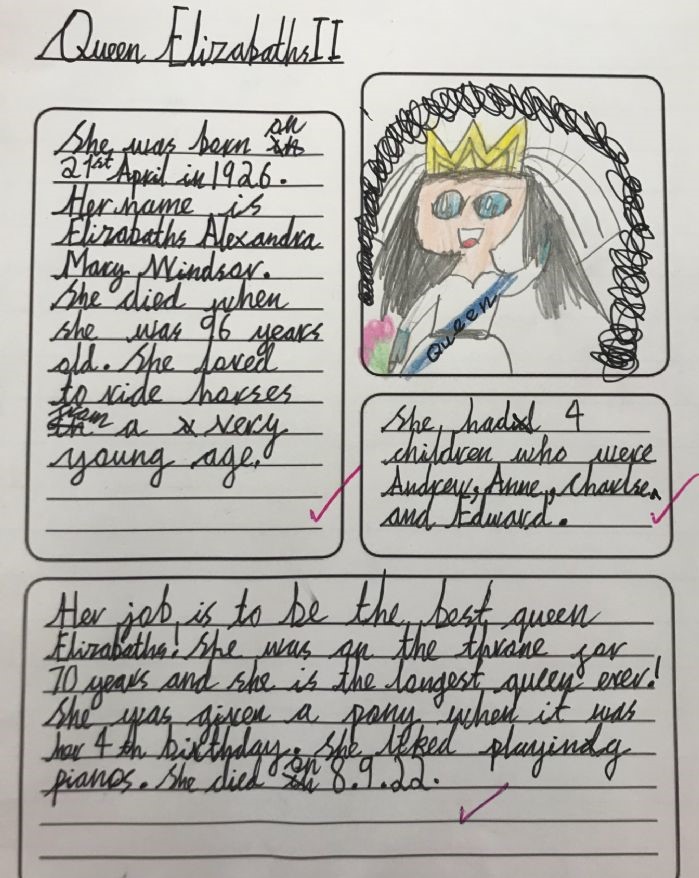 Queen Elizabaths II
She was born on
21st April in 1926.
Her name is
Elizabaths Alexandra
Mary Windsor.
She died when
she was 96 years
old. She loved
to ride horses
from a very
young age.
Queen
She had 4
children who were
Andrew, Anne, Charlse,
and Edward.
Her job is to be the best queen
Elizabaths! She was on the throne for
70 years and she is the longest queen ever!
She was given a pony when it was
her 4th birthday. She liked playindg
pianos. She died on 8.9.22.